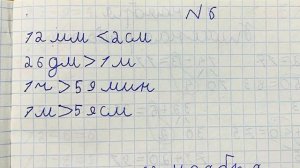 №6
12 мм < 2 см
26 дм > 1 м
1 ч > 59 мин
1 м > 59 см